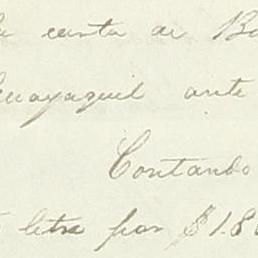 la cuenta de Ba
Guayaquil ante
Contando
letra por $1.8